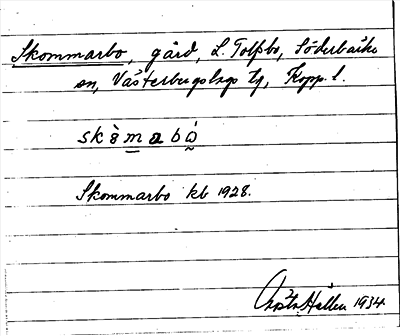 Skommarbo, gård, L. Tolfsbo, Söderbärke
sn, Västerbergslags tg, Kopp. l.
Skommarbo kb 1928.
Gösta Hallen 1934